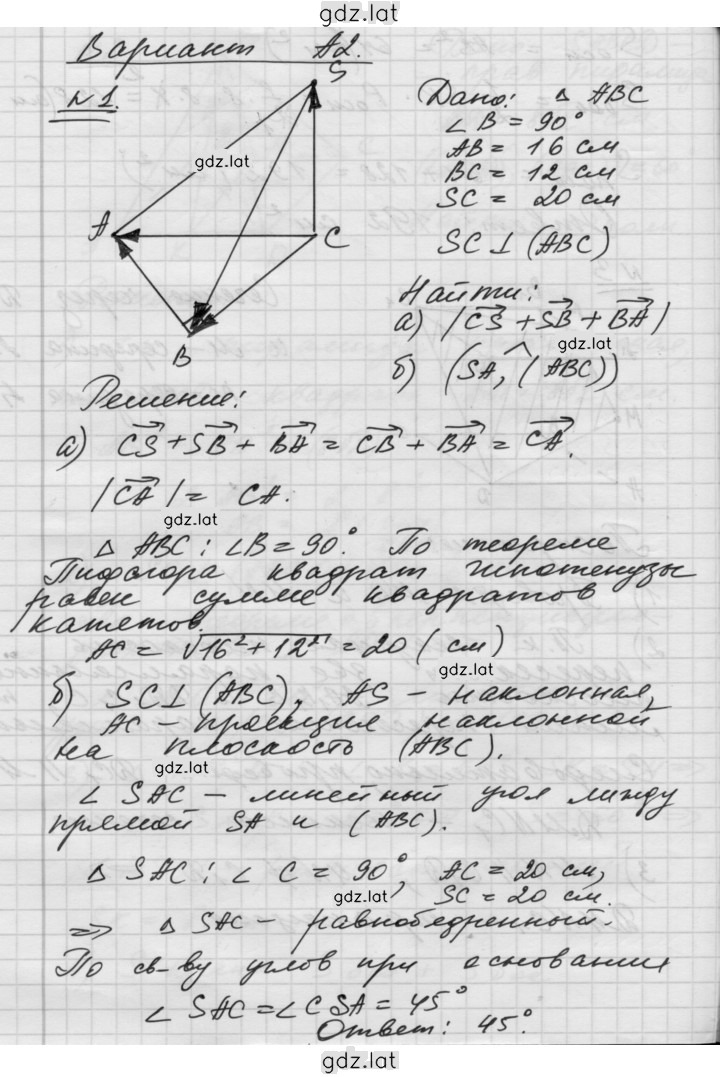 gdz.lat
Вариант А2.
N1.
S
gdz.lat
A
C
B
Дано: Δ ABC
∠ B = 90°
AB = 16 см
BC = 12 см
SC = 20 см
SC ⊥ (ABC)
Найти:
а) |CS + SB + BA|
gdz.lat
б) (SA, ^ (ABC))
Решение:
а) CS + SB + BA = CB + BA = CA.
|CA| = CA.
gdz.lat
Δ ABC: ∠B = 90°. По теореме
Пифагора квадрат гипотенузы
равен сумме квадратов
катетов.
AC = √16² + 12² = 20 (см)
gdz.lat
б) SC ⊥ (ABC), AS – наклонная,
AC – проекция наклонной
на плоскость (ABC).
gdz.lat
∠ SAC – линейный угол между
прямой SA и (ABC).
Δ SAC: ∠ C = 90°, AC = 20 см,
SC = 20 см.
gdz.lat
=> Δ SAC – равнобедренный.
По св-ву углов при основании
∠ SAC = ∠ CSA = 45°
Ответ: 45°.
gdz.lat